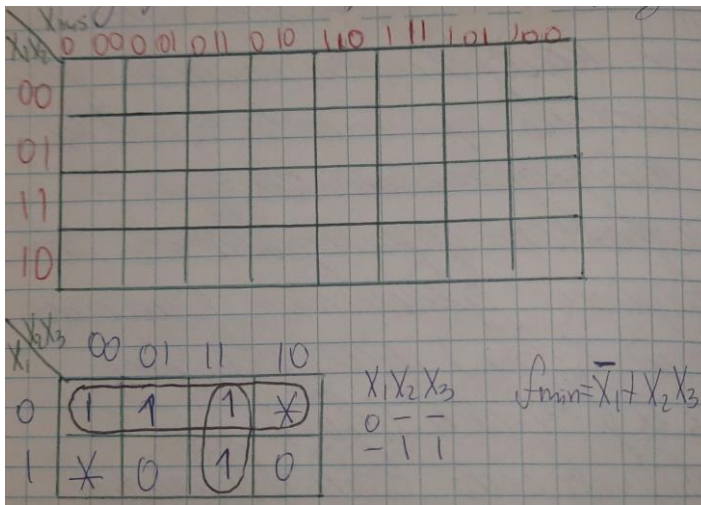 X₁X₂ 000 001 011 010 110 111 101 100
00
01
11
10
X₁ X₂X₃ 00 01 11 10
0 1 1 1 X
1 X 0 1 0
X₁X₂X₃
0 – –
– 1 1
fmin = X̅₁ + X₂X₃